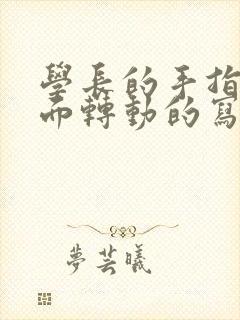 學長的手指
而轉動的寫
夢芸曦